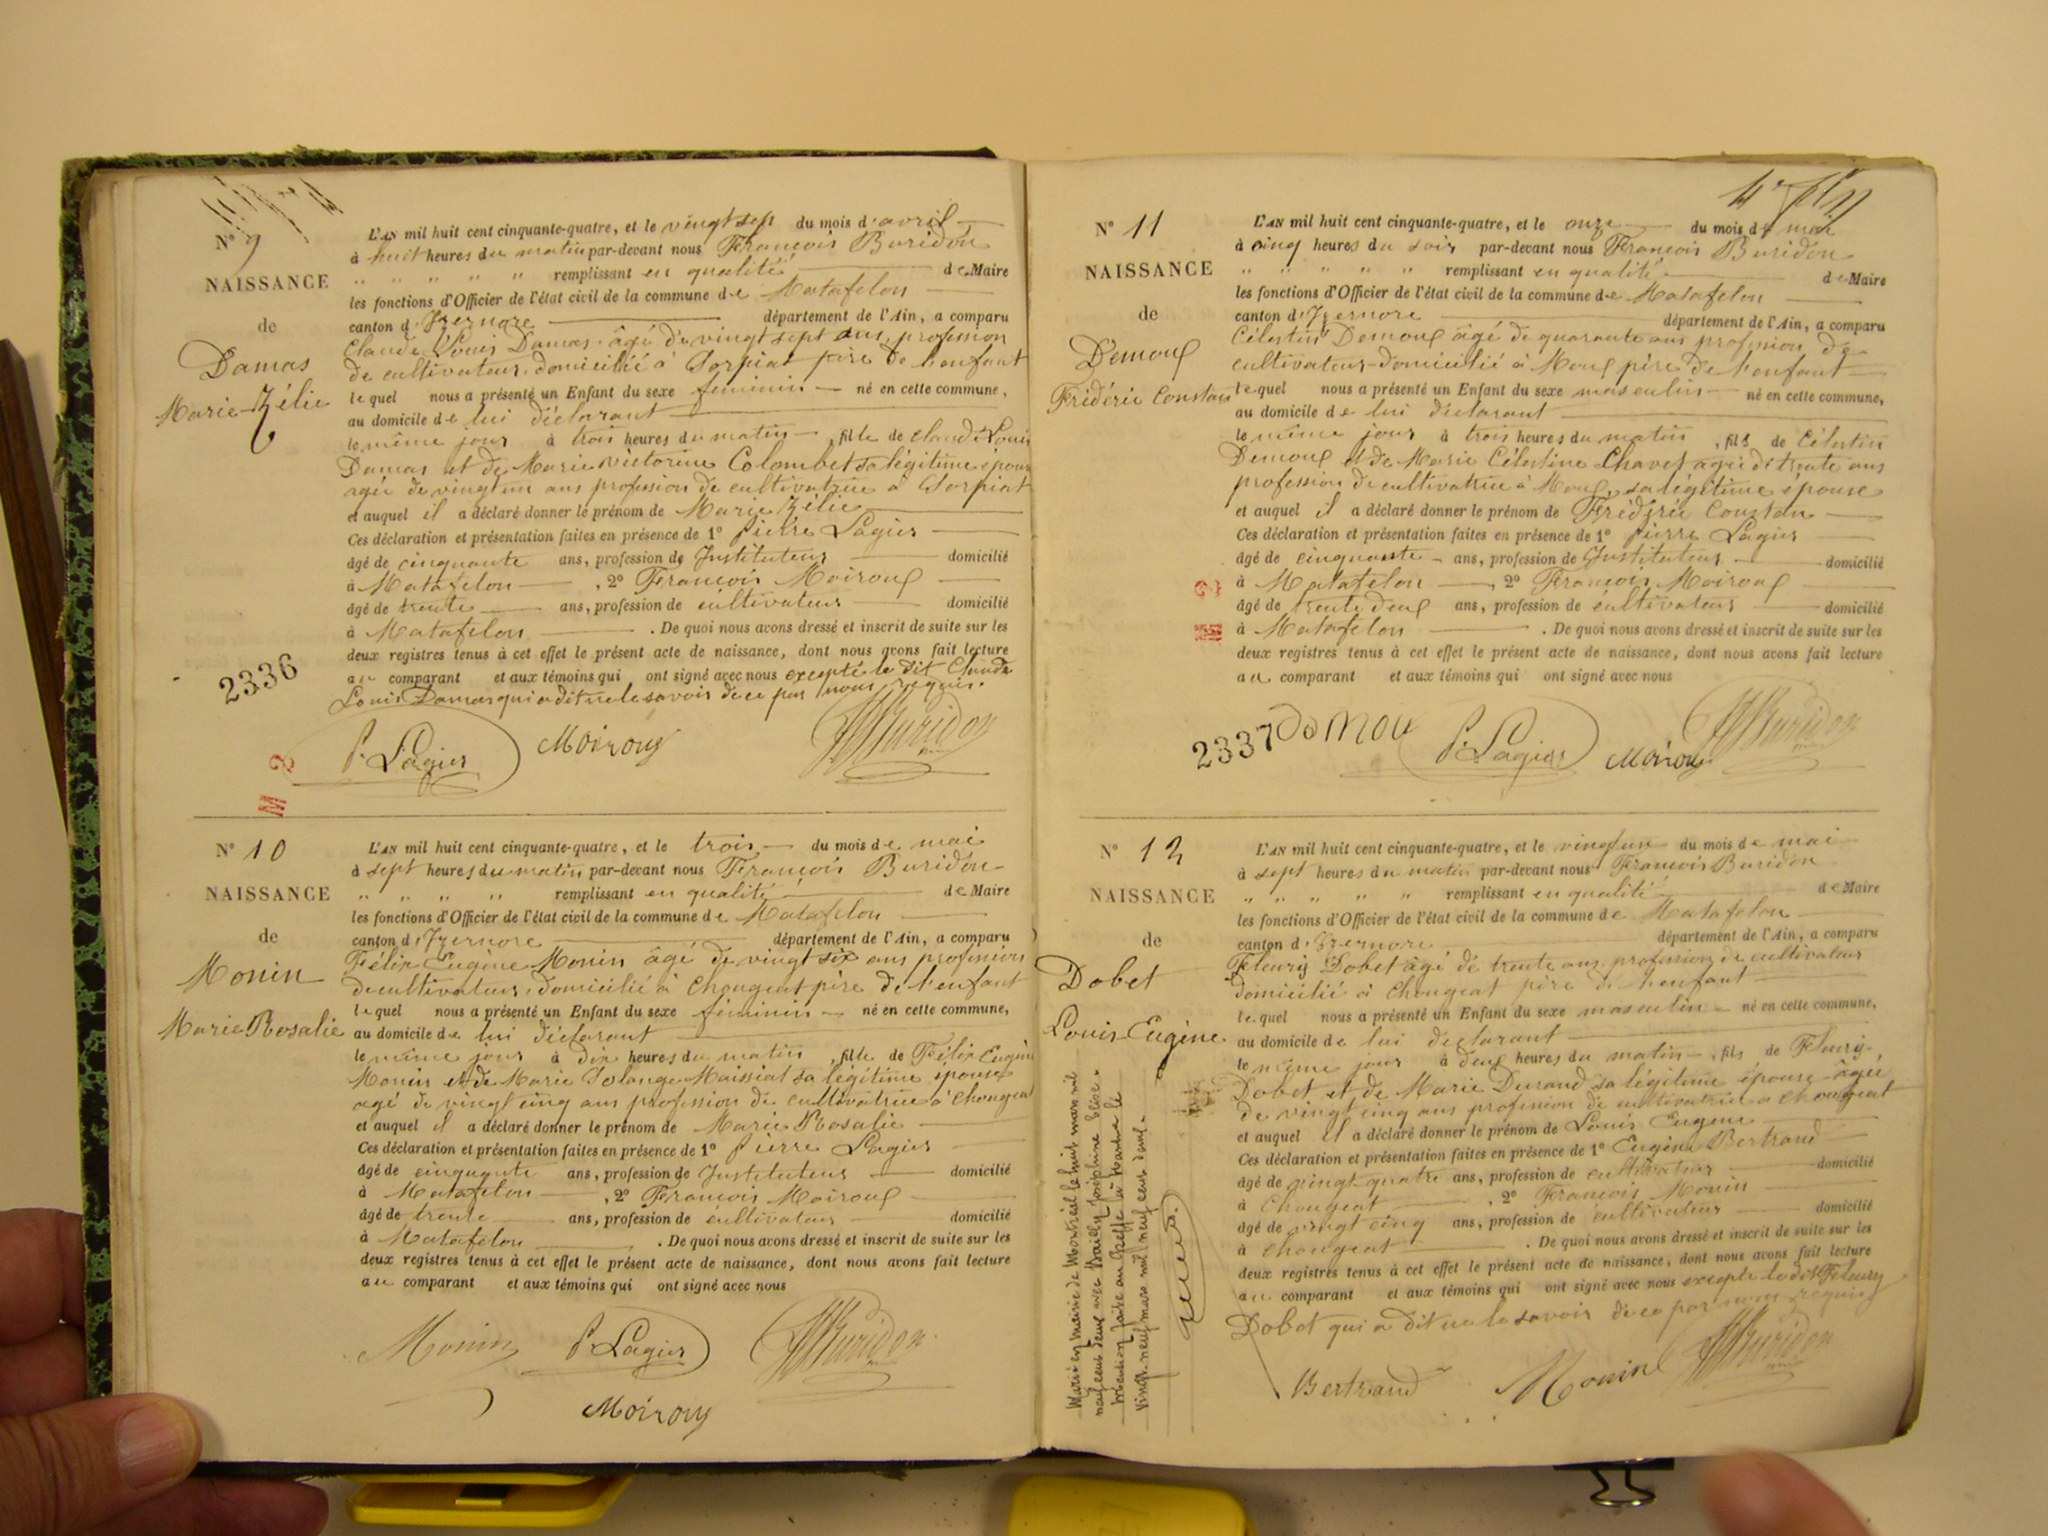 N° 9
NAISSANCE
de
Damas
Marie Zélie
L'AN mil huit cent cinquante-quatre, et le vingt sept du mois d'avril
à huit heures du matin par-devant nous François Buridon
" " " " remplissant en qualité de Maire
les fonctions d'Officier de l'état civil de la commune de Matafelon
canton d'Izernore département de l'Ain, a comparu
Claude Louis Damas âgé de vingt sept ans, profession
de cultivateur domicilié à Corpiat père de l'enfant
lequel nous a présenté un Enfant du sexe féminin né en cette commune,
au domicile de lui déclarant
le même jour à trois heures du matin, fille de Claude Louis
Damas et de Marie Victorine Colombet sa légitime épouse
agée de vingt un ans profession de cultivatrice à Corpiat
et auquel il a déclaré donner le prénom de Marie Zélie
Ces déclaration et présentation faites en présence de 1° Pierre Lagier
âgé de cinquante ans, profession de Instituteur domicilié
à Matafelon, 2° François Moiroux
âgé de trente ans, profession de cultivateur domicilié
à Matafelon. De quoi nous avons dressé et inscrit de suite sur les
deux registres tenus à cet effet le présent acte de naissance, dont nous avons fait lecture
au comparant et aux témoins qui ont signé avec nous excepté le dit Claude
Louis Damas qui a dit ne le savoir de ce par nous requis.
2336
P. Lagier Moiroux Buridon
M 2
N° 10
NAISSANCE
de
Monin
Marie Rosalie
L'AN mil huit cent cinquante-quatre, et le trois du mois de mai
à sept heures du matin par-devant nous François Buridon
" " " " remplissant en qualité de Maire
les fonctions d'Officier de l'état civil de la commune de Matafelon
canton d'Izernore département de l'Ain, a comparu
Félix Eugène Monin âgé de vingt six ans profession
de cultivateur, domicilié à Chougeat père de l'enfant
lequel nous a présenté un Enfant du sexe féminin né en cette commune,
au domicile de lui déclarant
le même jour à dix heures du matin, fille de Félix Eugène
Monin et de Marie Solange Maissiat sa légitime épouse
agé de vingt cinq ans profession de cultivatrice à Chougeat
et auquel il a déclaré donner le prénom de Marie Rosalie
Ces déclaration et présentation faites en présence de 1° Pierre Lagier
âgé de cinquante ans, profession de Instituteur domicilié
à Matafelon, 2° François Moiroux
âgé de trente ans, profession de cultivateur domicilié
à Matafelon. De quoi nous avons dressé et inscrit de suite sur les
deux registres tenus à cet effet le présent acte de naissance, dont nous avons fait lecture
au comparant et aux témoins qui ont signé avec nous
Monin P. Lagier Buridon
Moiroux
N° 11
NAISSANCE
de
Demoux
Frédéric Constan
L'AN mil huit cent cinquante-quatre, et le onze du mois de mai
à cinq heures du soir par-devant nous François Buridon
" " " " " remplissant en qualité de Maire
les fonctions d'Officier de l'état civil de la commune de Matafelon
canton d'Izernore département de l'Ain, a comparu
Célestin Demoux âgé de quarante ans profession de
cultivateur domicilié à Moux père de l'enfant
lequel nous a présenté un Enfant du sexe masculin né en cette commune,
au domicile de lui déclarant
le même jour à trois heures du matin, fils de Célestin
Demoux et de Marie Célestine Chavet agée de trente ans
profession de cultivatrice à Moux, sa légitime épouse
et auquel il a déclaré donner le prénom de Frédéric Constan
Ces déclaration et présentation faites en présence de 1° Pierre Lagier
âgé de cinquante ans, profession de Instituteur domicilié
à Matafelon, 2° François Moiroux
âgé de trente deux ans, profession de cultivateur domicilié
à Matafelon. De quoi nous avons dressé et inscrit de suite sur les
deux registres tenus à cet effet le présent acte de naissance, dont nous avons fait lecture
au comparant et aux témoins qui ont signé avec nous
2337 Demou P. Lagier Moiroux Buridon
N° 12
NAISSANCE
de
Dobet
Louis Eugène
L'AN mil huit cent cinquante-quatre, et le vingt un du mois de mai
à sept heures du matin par-devant nous François Buridon
" " " " " remplissant en qualité de Maire
les fonctions d'Officier de l'état civil de la commune de Matafelon
canton d'Izernore département de l'Ain, a comparu
Fleury Dobet âgé de trente ans profession de cultivateur
domicilié à Chougeat père de l'enfant
lequel nous a présenté un Enfant du sexe masculin né en cette commune,
au domicile de lui déclarant
le même jour à deux heures du matin, fils de Fleury
Dobet et de Marie Durand sa légitime épouse agée
de vingt cinq ans profession de cultivatrice à Chougeat
et auquel il a déclaré donner le prénom de Louis Eugène
Ces déclaration et présentation faites en présence de 1° Eugène Bertrand
âgé de vingt quatre ans, profession de cultivateur domicilié
à Chougeat, 2° François Monin
âgé de vingt cinq ans, profession de cultivateur domicilié
à Chougeat. De quoi nous avons dressé et inscrit de suite sur les
deux registres tenus à cet effet le présent acte de naissance, dont nous avons fait lecture
au comparant et aux témoins qui ont signé avec nous excepté le dit Fleury
Dobet qui a dit ne le savoir de ce par nous requis
Bertrand Monin Buridon
Marié en mairie de Montréal le huit mars mil
neuf cent deux avec Bailly Joséphine Elise.
Mention faite au Greffe à Nantua le
vingt-neuf mars mil neuf cent deux.